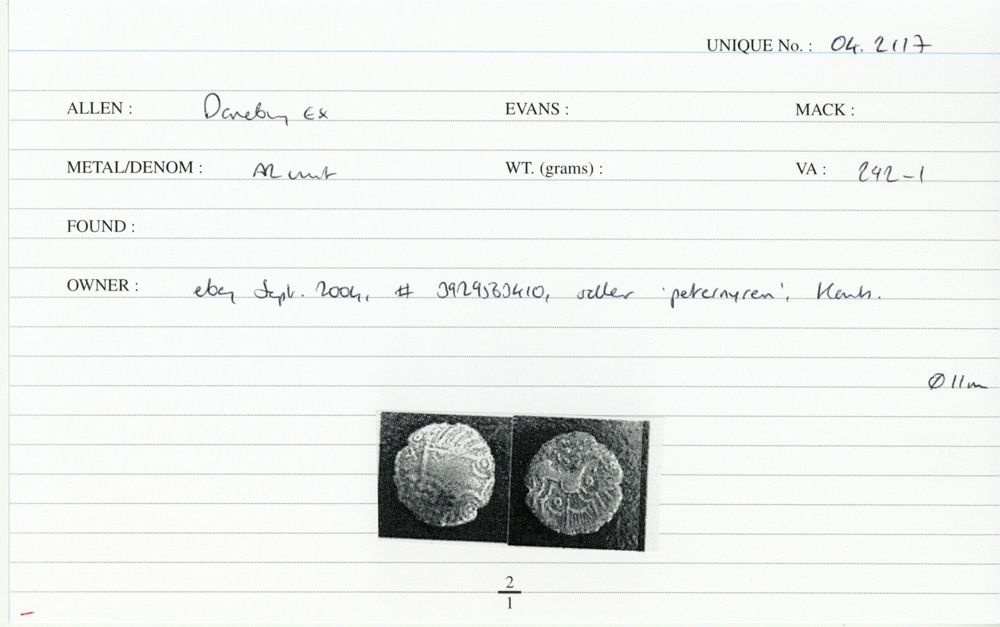 UNIQUE No. : 04. 2117
ALLEN : Danebury Ex EVANS : MACK :
METAL/DENOM : AR unit WT. (grams) : VA : 242-1
FOUND :
OWNER : ebay Sept. 2004, # 3929563410, seller 'peternyren', Hants.
Ø 11m
2
1